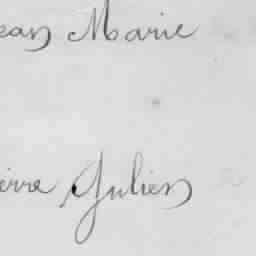 ean Marie
ierre Julien